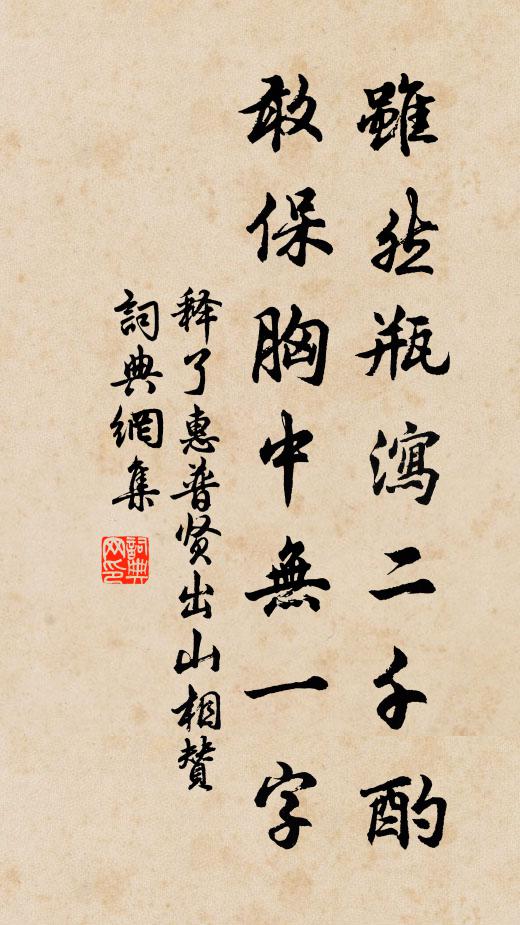 雖然瓶瀉二千酌
敢保胸中無一字
释了惠普贤出山相赞
詞典網集
詞典网印